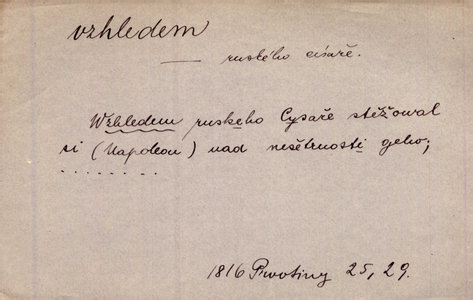 vzhledem
—— ruského císaře.
Wzhledem ruskeho Cysaře stěžowal
si (Napoleon) nad nešetrnosti geho;
. . . . . . . .
1816 Prvotiny 25, 29.